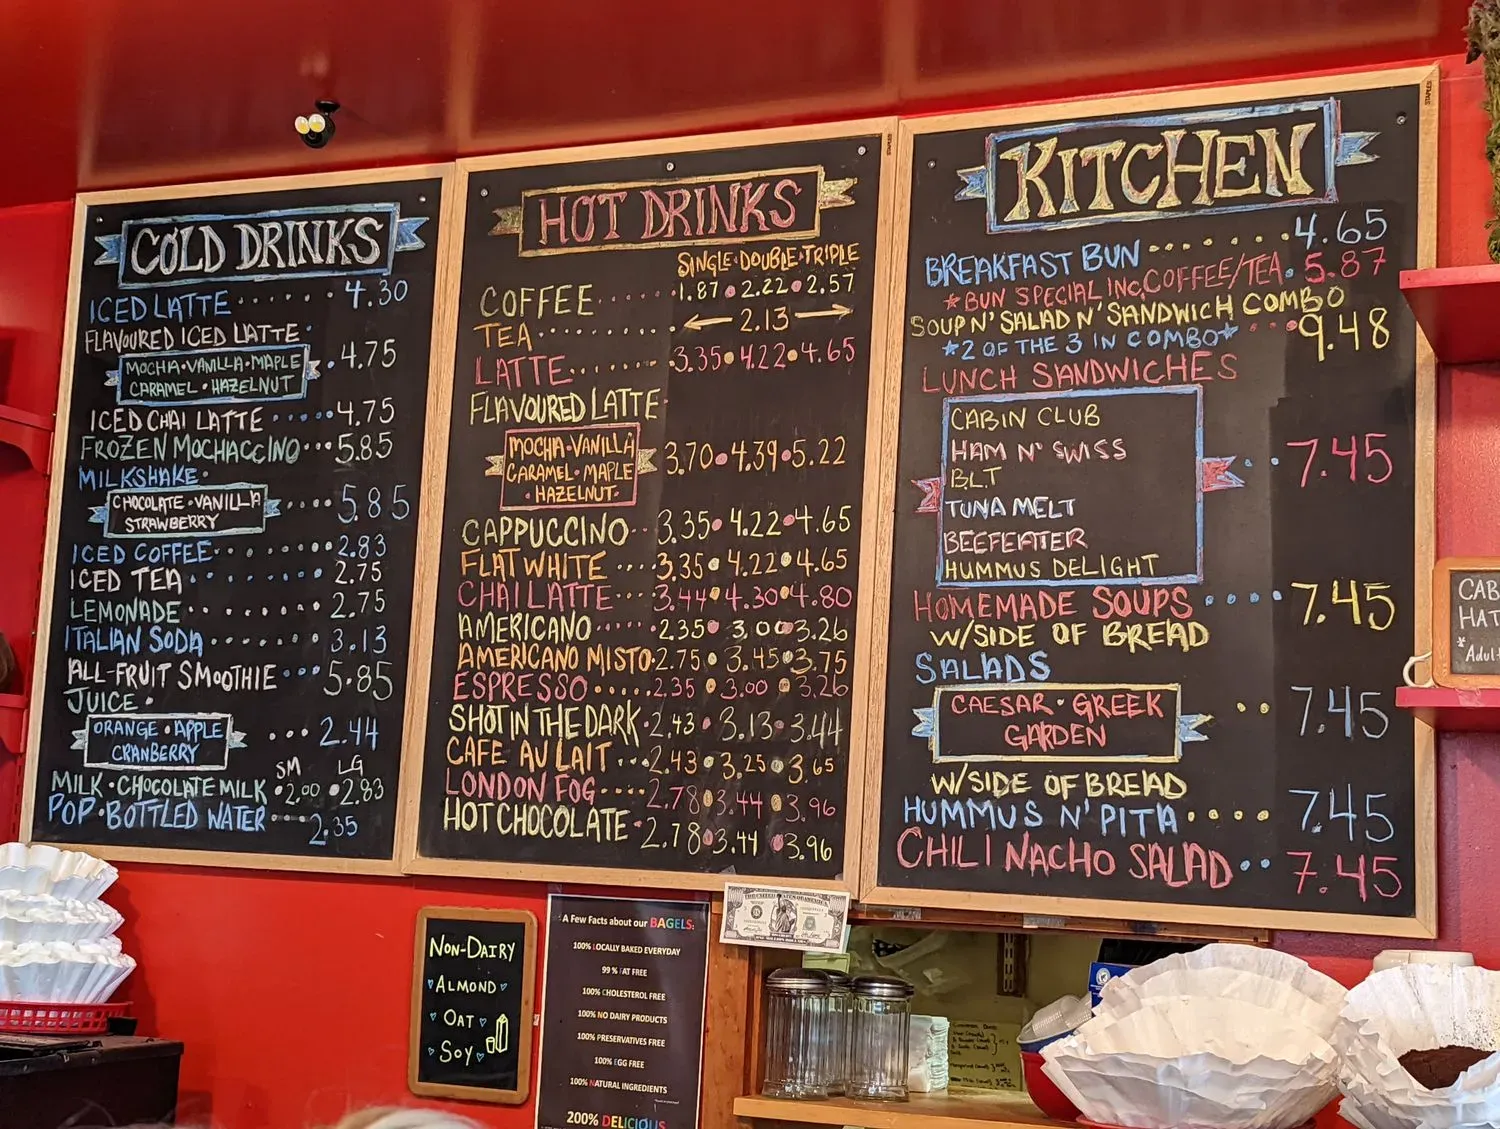 COLD DRINKS
ICED LATTE 4.30
FLAVOURED ICED LATTE
MOCHA • VANILLA • MAPLE
CARAMEL • HAZELNUT
4.75
ICED CHAI LATTE 4.75
FROZEN MOCHACCINO 5.85
MILKSHAKE
CHOCOLATE • VANILLA
STRAWBERRY
5.85
ICED COFFEE 2.83
ICED TEA 2.75
LEMONADE 2.75
ITALIAN SODA 3.13
ALL-FRUIT SMOOTHIE 5.85
JUICE
ORANGE • APPLE
CRANBERRY
2.44
SM LG
MILK • CHOCOLATE MILK 2.00 2.83
POP • BOTTLED WATER 2.35
HOT DRINKS
SINGLE • DOUBLE • TRIPLE
COFFEE 1.87 • 2.22 • 2.57
TEA 2.13
LATTE 3.35 • 4.22 • 4.65
FLAVOURED LATTE
MOCHA • VANILLA
CARAMEL • MAPLE
• HAZELNUT •
3.70 • 4.39 • 5.22
CAPPUCCINO 3.35 • 4.22 • 4.65
FLAT WHITE 3.35 • 4.22 • 4.65
CHAI LATTE 3.44 • 4.30 • 4.80
AMERICANO 2.35 • 3.00 • 3.26
AMERICANO MISTO 2.75 • 3.45 • 3.75
ESPRESSO 2.35 • 3.00 • 3.26
SHOT IN THE DARK 2.43 • 3.13 • 3.44
CAFE AU LAIT 2.43 • 3.25 • 3.65
LONDON FOG 2.78 • 3.44 • 3.96
HOT CHOCOLATE 2.78 • 3.44 • 3.96
KITCHEN
BREAKFAST BUN 4.65
*BUN SPECIAL INC. COFFEE/TEA 5.87
SOUP N' SALAD N' SANDWICH COMBO
*2 OF THE 3 IN COMBO* 9.48
LUNCH SANDWICHES
CABIN CLUB
HAM N' SWISS
BLT
TUNA MELT
BEEFEATER
HUMMUS DELIGHT
7.45
HOMEMADE SOUPS 7.45
W/SIDE OF BREAD
SALADS
CAESAR • GREEK
GARDEN
7.45
W/SIDE OF BREAD
HUMMUS N' PITA 7.45
CHILI NACHO SALAD 7.45
STAPLES
STAPLES
NON-DAIRY
ALMOND
OAT
SOY
A Few Facts about our BAGELS:
100% LOCALLY BAKED EVERYDAY
99 % FAT FREE
100% CHOLESTEROL FREE
100% NO DAIRY PRODUCTS
100% PRESERVATIVES FREE
100% EGG FREE
100% NATURAL INGREDIENTS
200% DELICIOUS
CAB
HAT
*
Adul